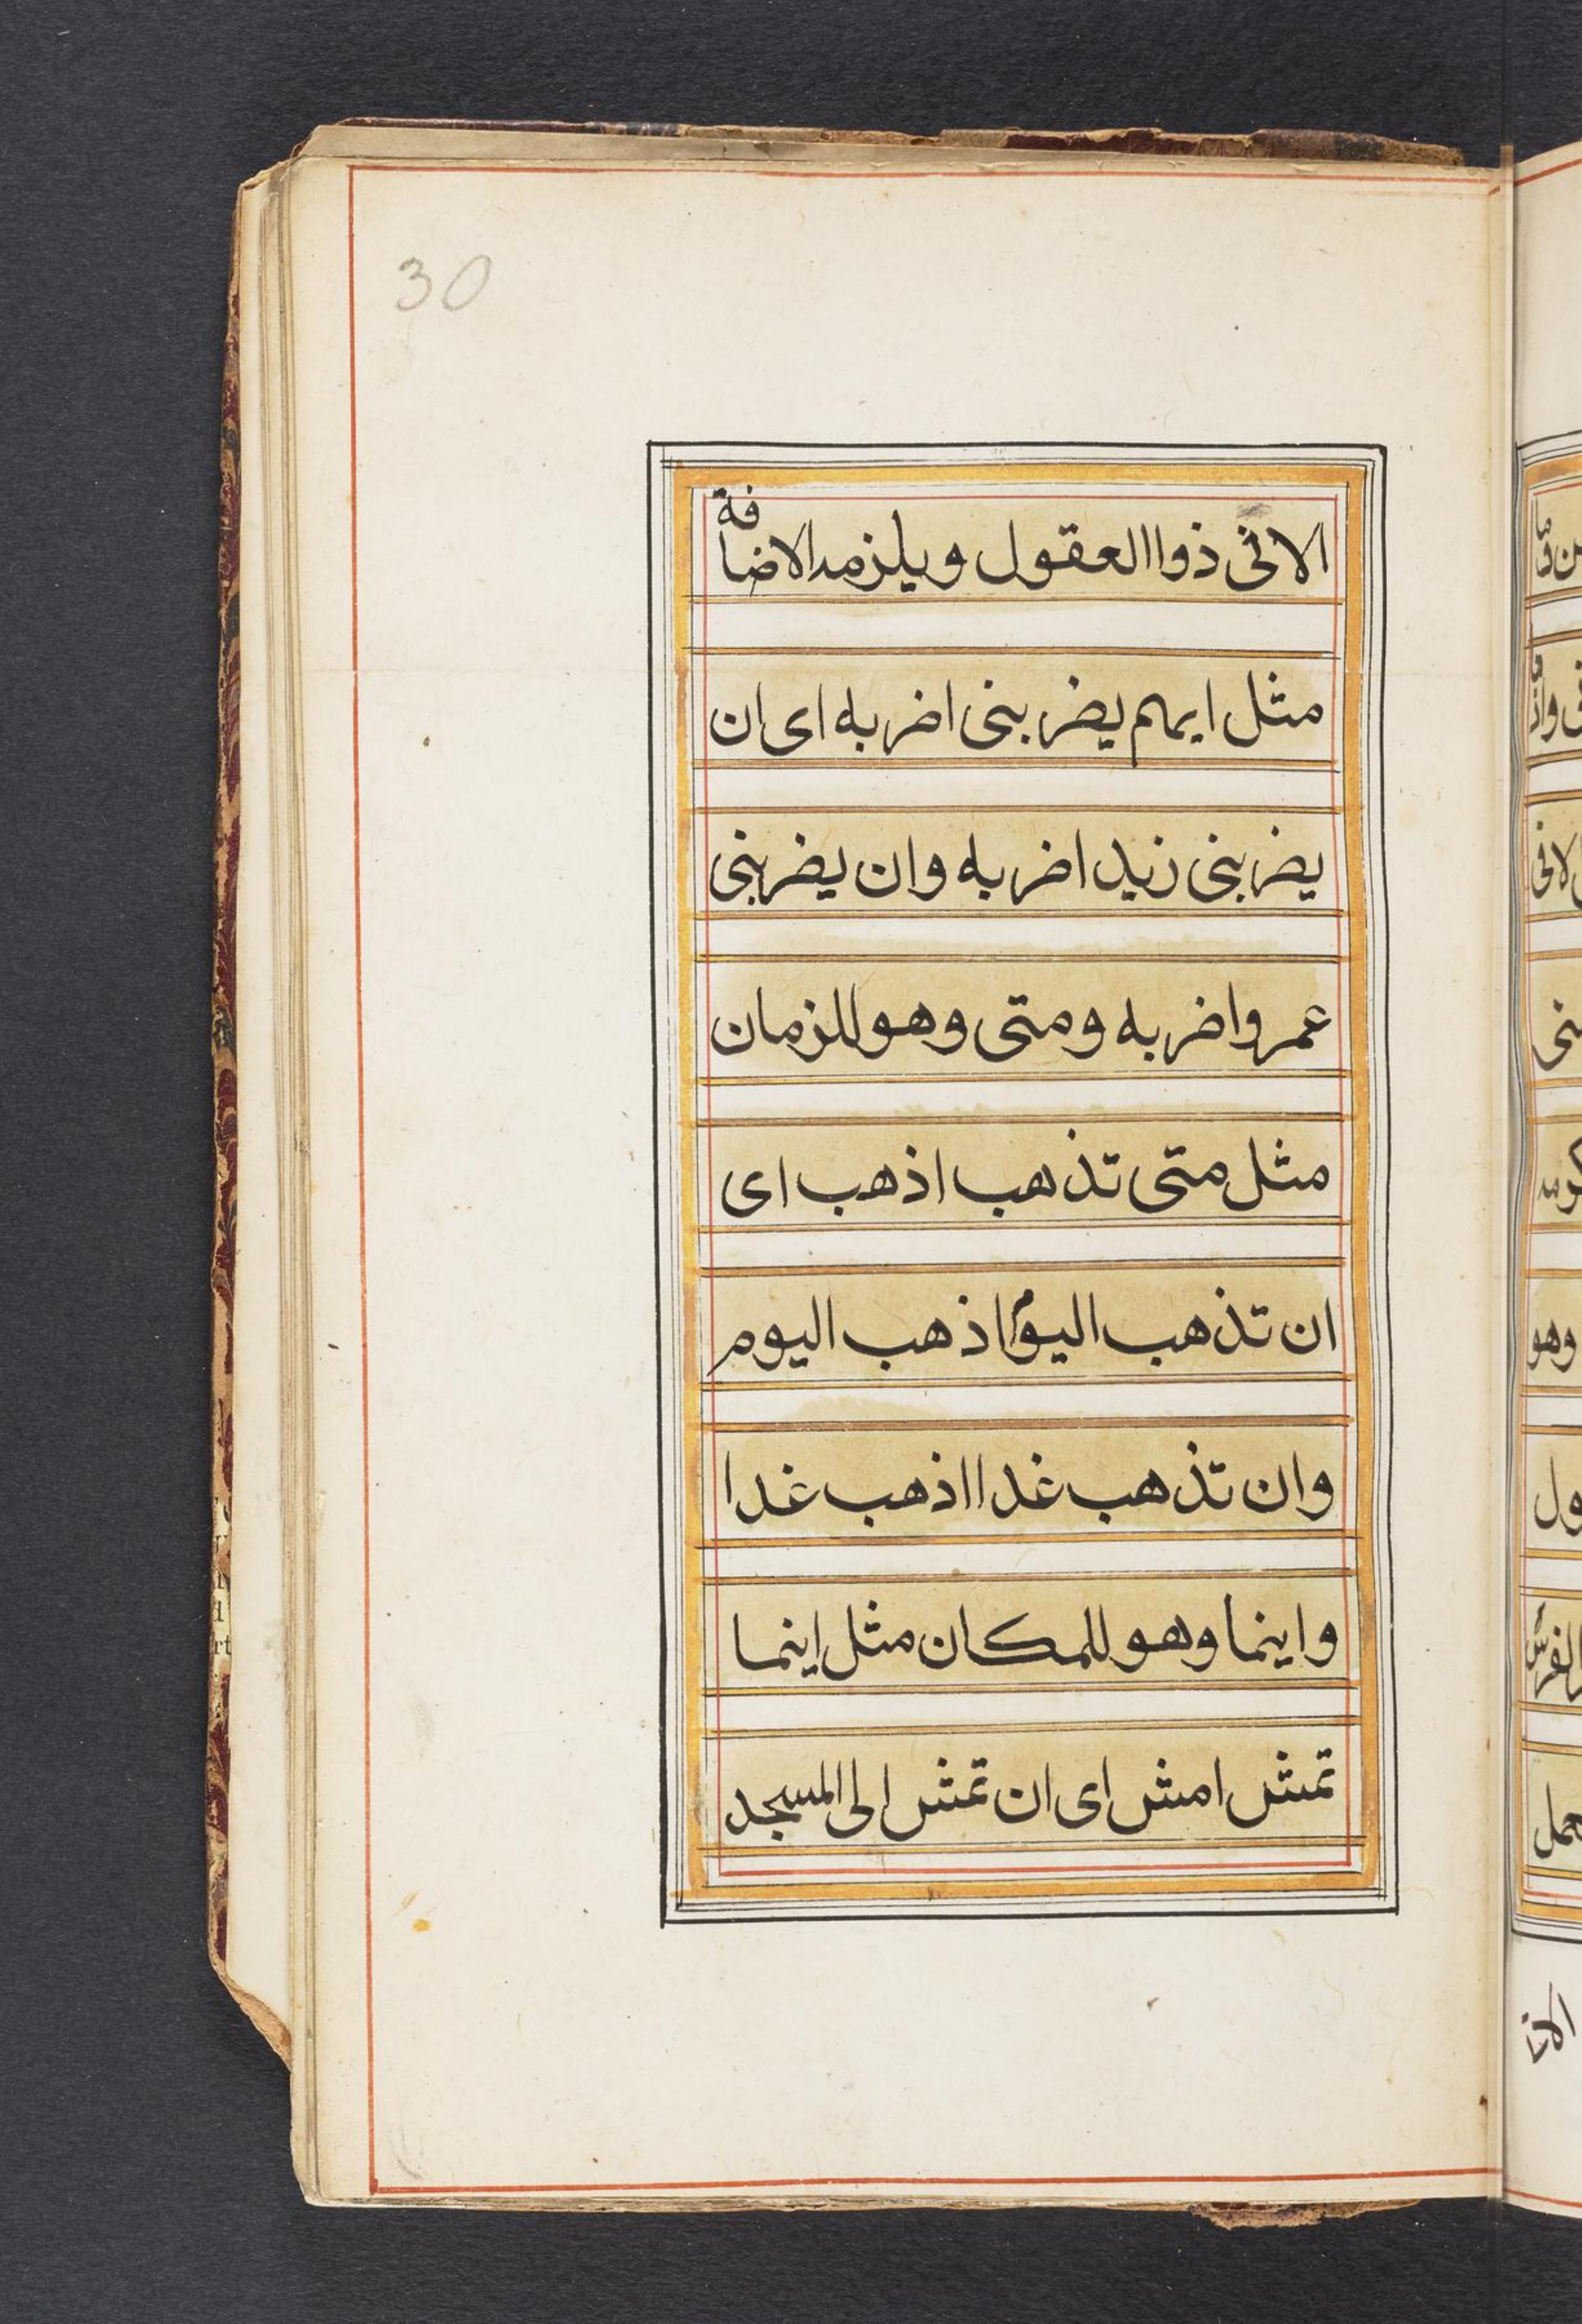 30
الا فى ذوا العقول ويلزمه الاضافة
مثل ايهم يضربنى اضربه اى ان
يضربنى زيد اضربه وان يضربنى
عمرو اضربه ومتى وهو للزمان
مثل متى تذهب اذهب اى
ان تذهب اليوم اذهب اليوم
وان تذهب غدا اذهب غدا
واينما وهو للمكان مثل اينما
تمش امش اى ان تمش الى المسجد